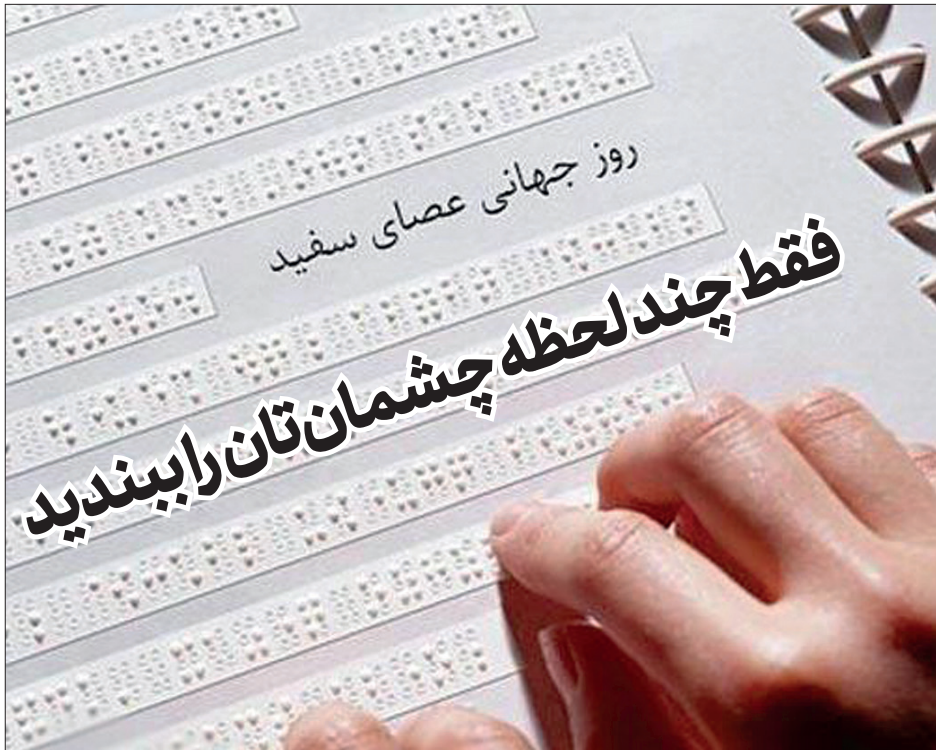 روز جهانی عصای سفید
فقط چند لحظه چشمان‌تان را ببندید